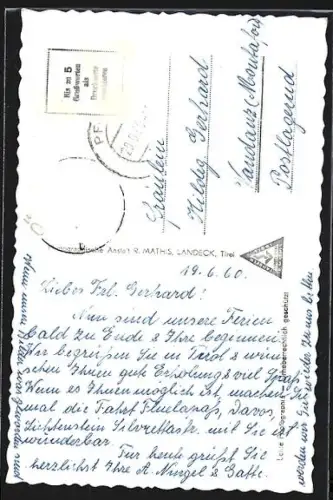 Bis zu 5
Grußworten
als
Drucksache
Fräulein
Hildeg Gerhard
Vandans (Montafon)
Postlagernd
Anstalt R. MATHIS, LANDECK, Tirol
19.6.60.
Liebes Frl. Gerhard!
Nun sind unsere Ferien
bald zu Ende & Ihre beginnen.
Wir begrüßen Sie in Tirol & wün-
schen Ihnen gute Erholung & viel Spaß.
Wenn es Ihnen möglich ist, machen Sie
mal die Fahrt Fluelapaß, Davos,
Lichtenstein Silvrettastr. mit Sie ist
wunderbar.
Für heute grüßt Sie
herzlichst Ihre A. & Gatte.
urheberrechtlich geschützt
werden wir Sie wieder zu uns bitten